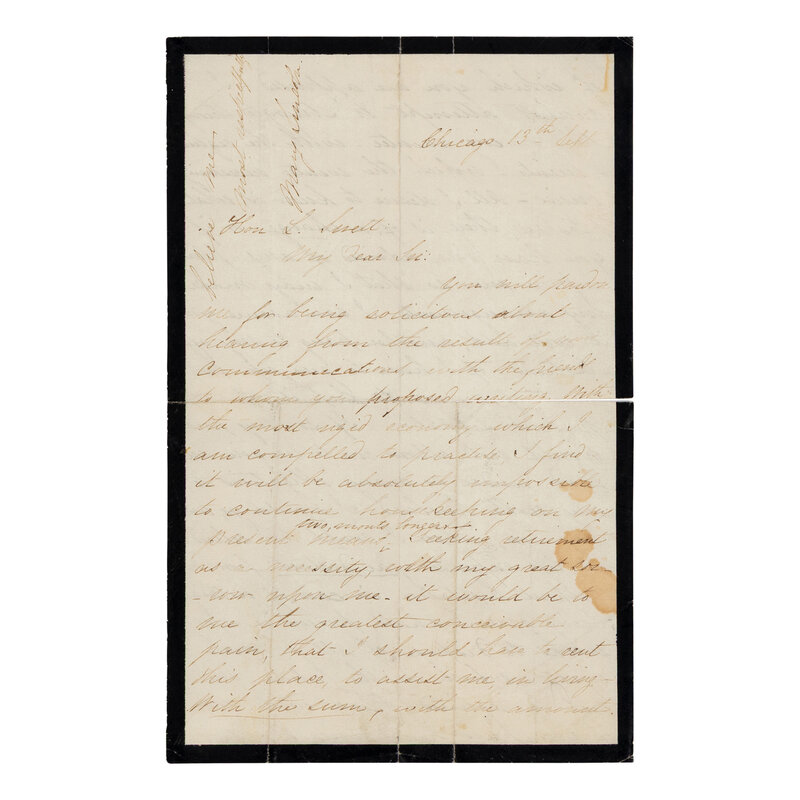 Chicago 13th Sept
Hon L. Swett.
My Dear Sir:
You will pardon
me for being solicitous about
hearing from the result of your
communications, with the friend
to whom you proposed writing. With
the most rigid economy which I
am compelled to practise I find
it will be absolutely impossible
to continue housekeeping on my
two, months longer
present means, Seeking retirement
as a necessity, with my great sor-
-row upon me - it would be to
me the greatest conceivable
pain, that I should have to rent
this place, to assist me, in living -
With the sum, with the amount
believe me
most respectfully
Mary Lincoln